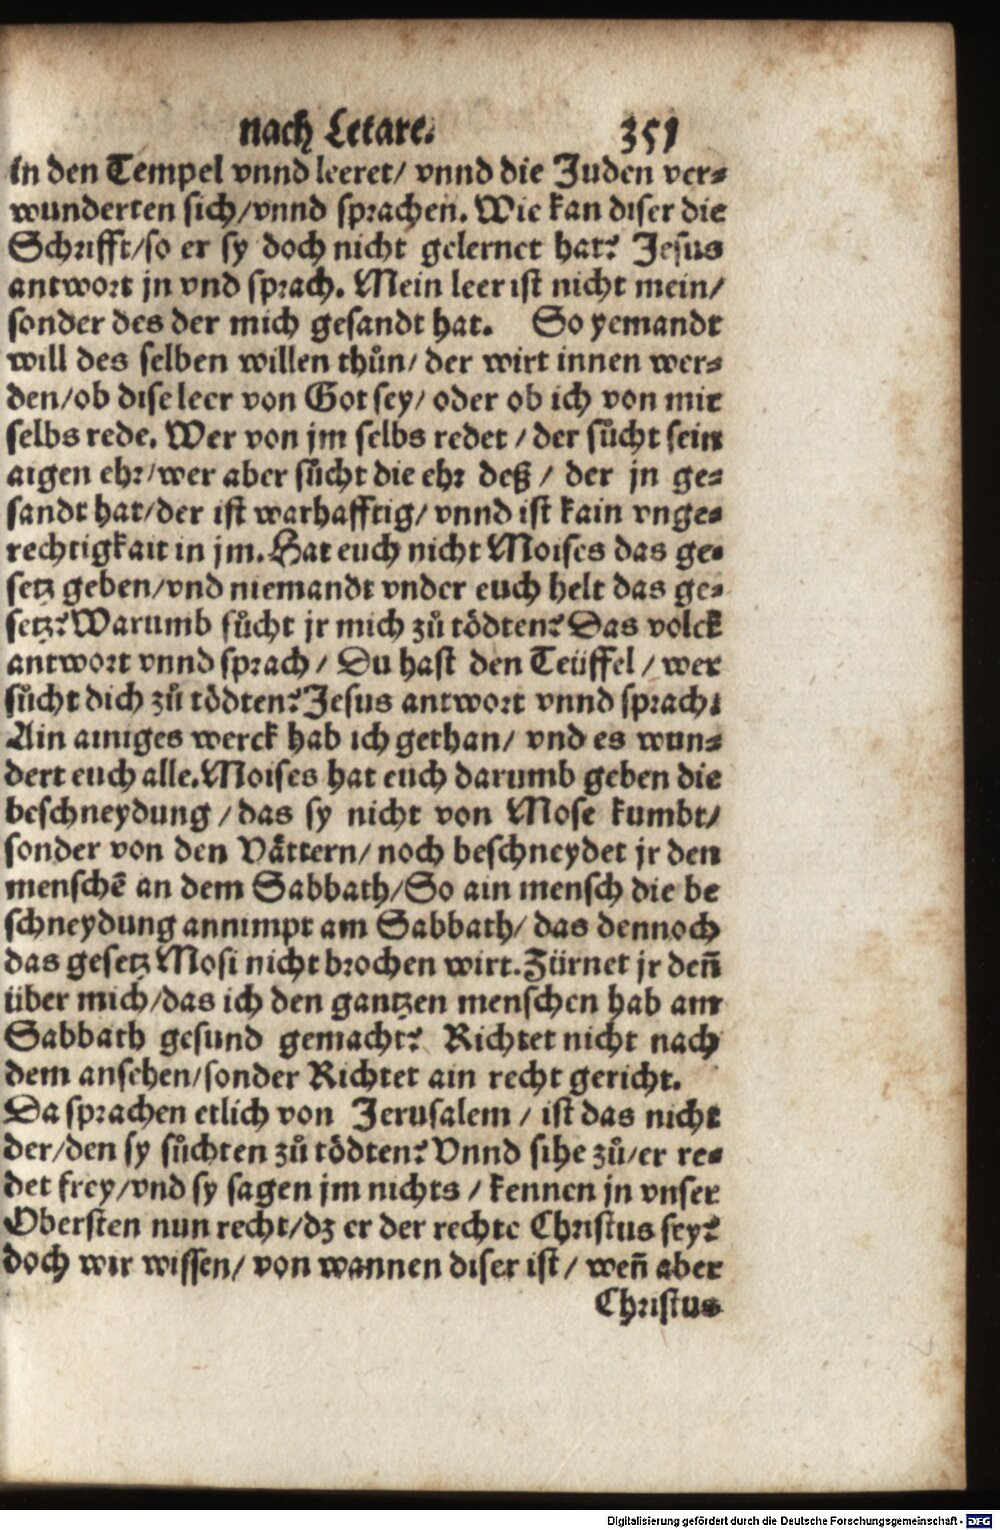 nach Letare. 351
in den Tempel vnnd leeret/ vnnd die Juden ver⸗
wunderten sich/vnnd sprachen. Wie kan diser die
Schrifft/so er sy doch nicht gelernet hat? Jesus
antwort jn vnd sprach. Mein leer ist nicht mein/
sonder des der mich gesandt hat. So yemandt
will des selben willen thůn/ der wirt innen wer⸗
den/ob dise leer von Got sey/ oder ob ich von mir
selbs rede. Wer von jm selbs redet / der sůcht sein
aigen ehr/wer aber sůcht die ehr deß / der jn ge⸗
sandt hat/der ist warhafftig/ vnnd ist kain vnge⸗
rechtigkait in jm. Hat euch nicht Moises das ge⸗
setz geben/vnd niemandt vnder euch helt das ge⸗
setz? Warumb sůcht jr mich zů tödten? Das volck
antwort vnnd sprach / Du hast den Teüffel / wer
sůcht dich zů tödten? Jesus antwort vnnd sprach:
Ain ainiges werck hab ich gethan/ vnd es wun⸗
dert euch alle. Moises hat euch darumb geben die
beschneydung / das sy nicht von Mose kumbt/
sonder von den Våttern/ noch beschneydet jr den
menschē an dem Sabbath/So ain mensch die be
schneydung annimpt am Sabbath/ das dennoch
das gesetz Mosi nicht brochen wirt. Zürnet jr deñ
über mich/das ich den gantzen menschen hab am
Sabbath gesund gemacht? Richtet nicht nach
dem ansehen/sonder Richtet ain recht gericht.
Da sprachen etlich von Jerusalem / ist das nicht
der/den sy sůchten zů tödten? Vnnd sihe zů/er re⸗
det frey/vnd sy sagen jm nichts / kennen jn vnser
Obersten nun recht/dz er der rechte Christus sey?
doch wir wissen/ von wannen diser ist / weñ aber
Christus
Digitalisierung gefördert durch die Deutsche Forschungsgemeinschaft - DFG